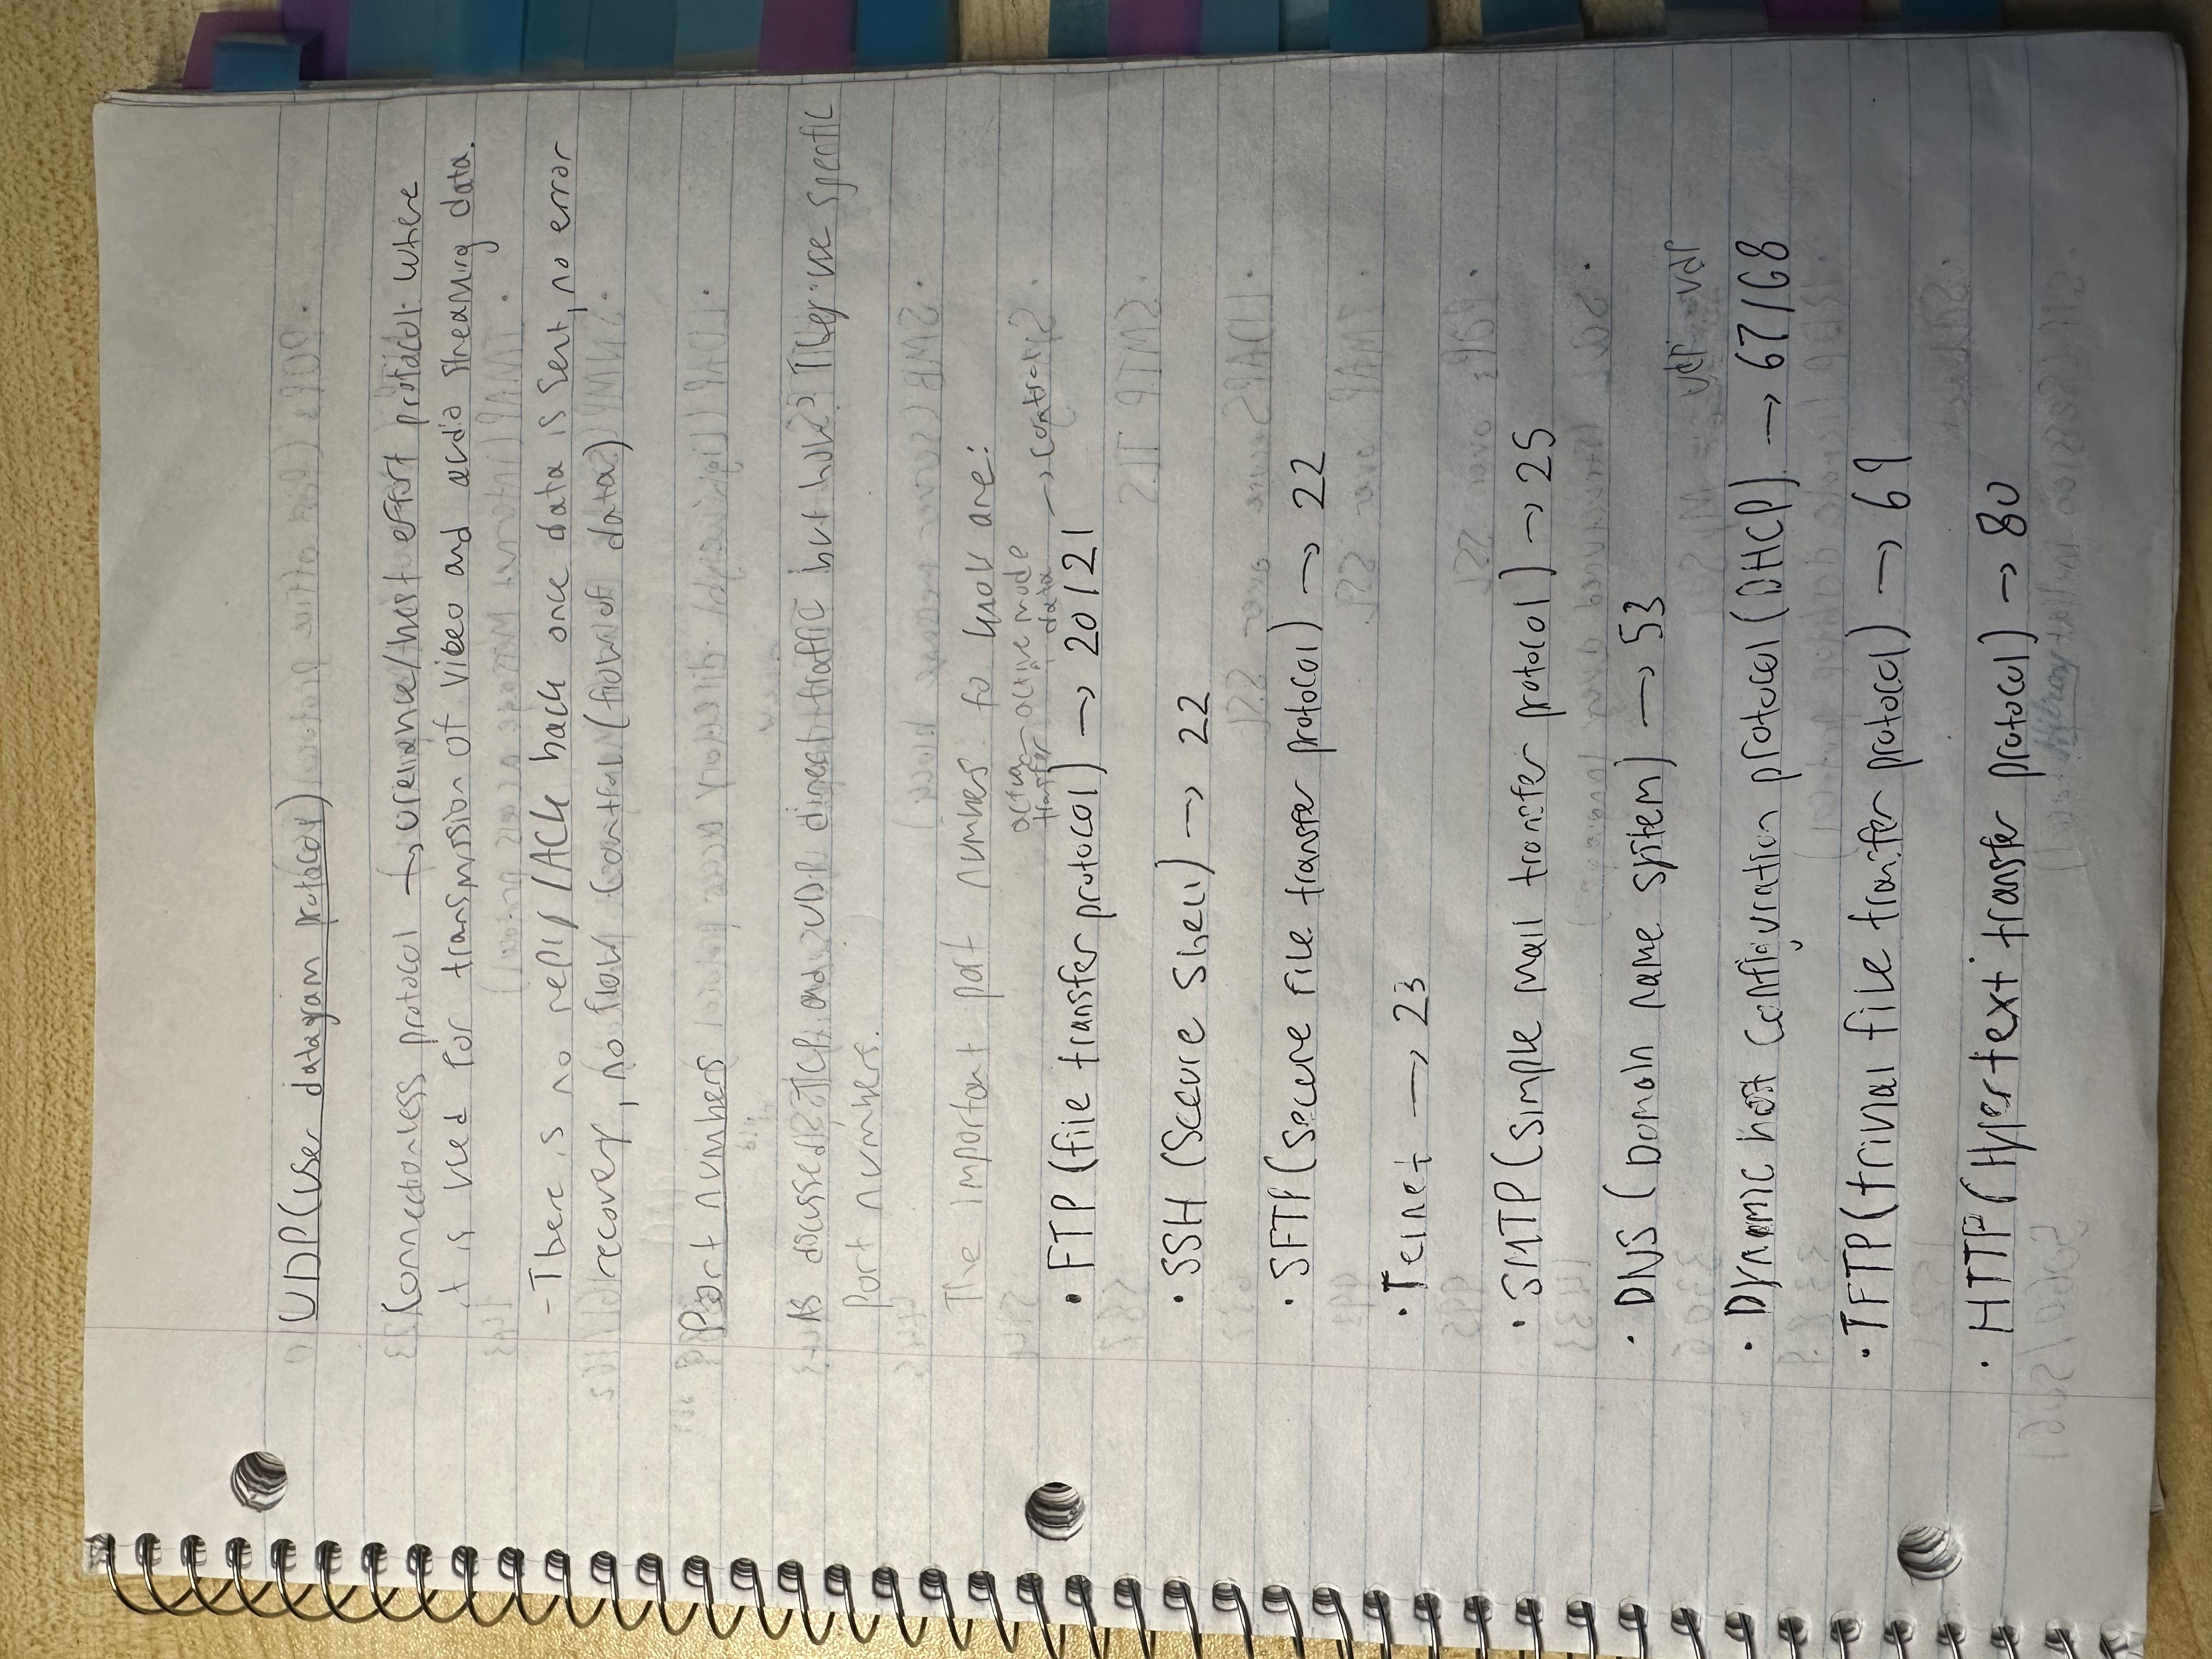 UDP (User datagram protocol)
Connectionless protocol → effort protocol where
it is used for transmission of video and audio streaming data.
- There is no reply/ACK back once data is sent, no error
recovery, no flow control (flow of data)
Port numbers
As discussed, TCP and UDP direct traffic but how? They use specific
port numbers.
The important port numbers to know are:
active mode
transfer ↑ data → control
• FTP (file transfer protocol) → 20/21
• SSH (Secure Shell) → 22
• SFTP (secure file transfer protocol) → 22
• Telnet → 23
• SMTP (simple mail transfer protocol) → 25
• DNS (Domain name system) → 53
udp udp
• Dynamic host configuration protocol (DHCP) → 67/68
• TFTP (trivial file transfer protocol) → 69
• HTTP (Hypertext transfer protocol) → 80